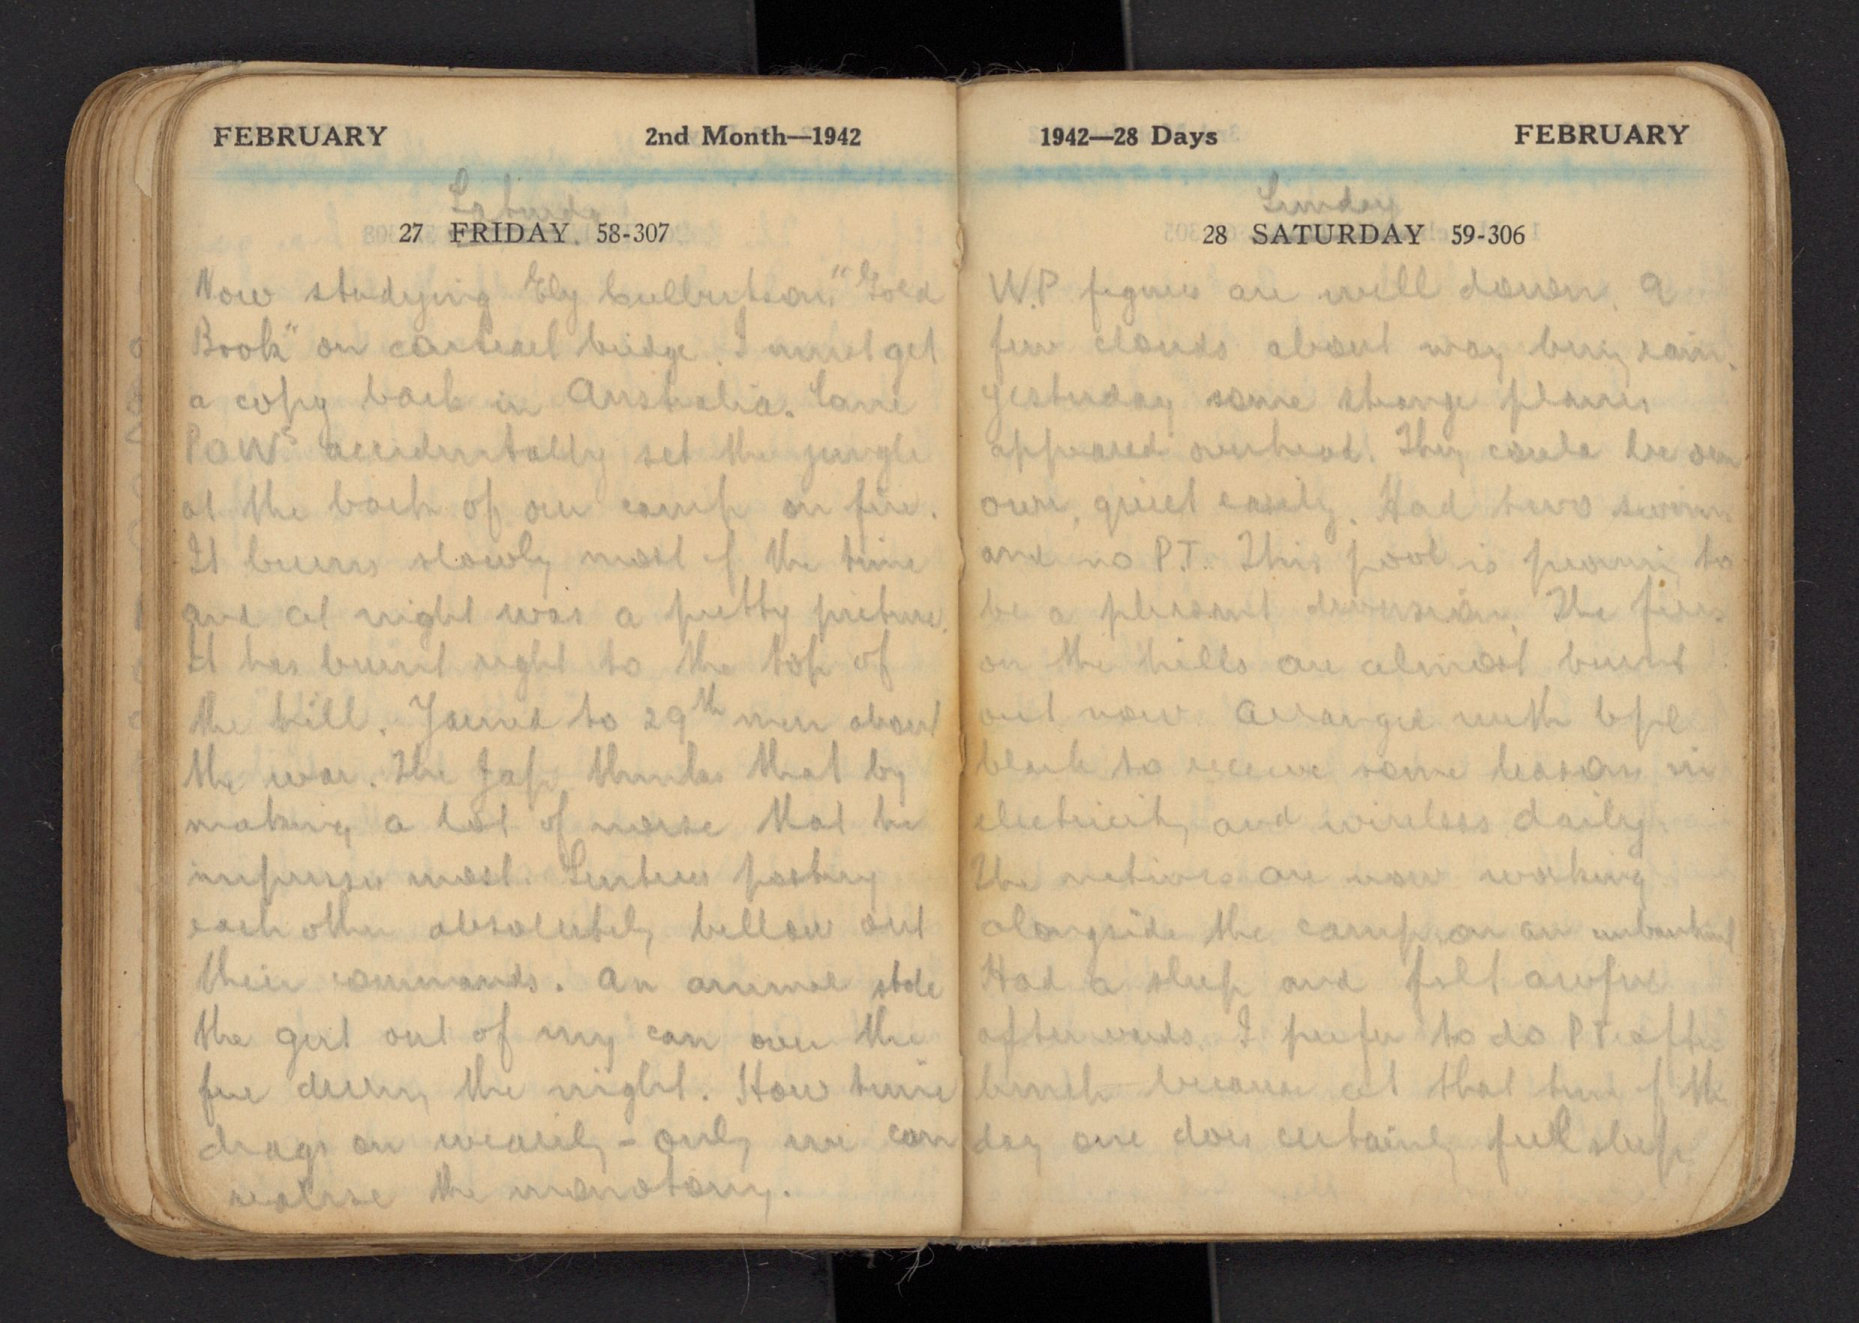 FEBRUARY 2nd Month—1942
Saturday
27 FRIDAY. 58-307
Now studying Ely Culbertson, "Gold
Book" on contract bridge. I must get
a copy back in Australia. Some
P.O.W.s accidentally set the jungle
at the back of our camp on fire.
It burns slowly most of the time
and at night was a pretty picture.
It has burnt right to the top of
the hill. to 29th men about
the war. The Jap thinks that by
making a lot of noise that he
impresses most. Sentries
each other absolutely bellow out
their commands. An animal stole
the out of my can over the
fire during the night. How time
drags on wearily – only we can
realise the monotony.
1942—28 Days FEBRUARY
Sunday
28 SATURDAY 59-306
W.P. figures are well down. A
few clouds about may bring rain.
Yesterday some strange planes
appeared overhead. They could be our
own, quiet easily. Had two swims
and no P.T. This pool is proving to
be a pleasant diversion. The fires
on the hills are almost burnt
out now. Arranged with Cpl
to receive some lessons in
electricity and wireless daily.
The natives are now working
alongside the camp on an embankment
Had a sleep and felt awful
afterwards. I prefer to do P.T. after
lunch because at that time of the
day one does certainly feel sleepy.